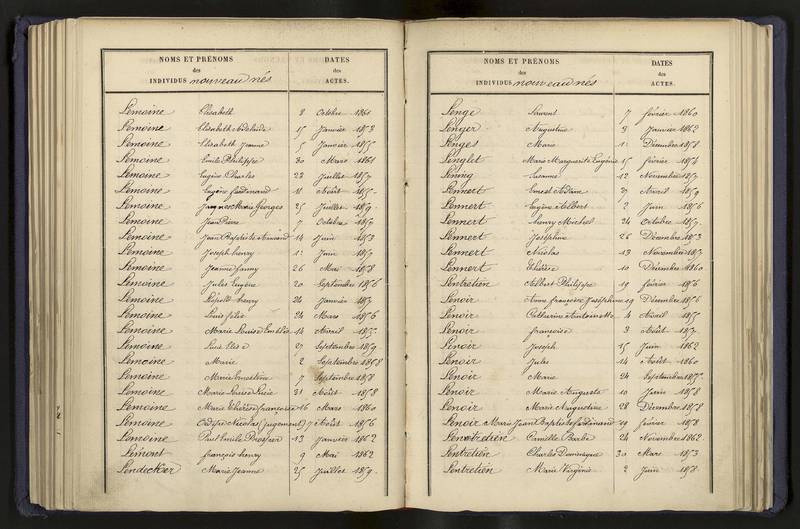 NOMS ET PRÉNOMS
des
INDIVIDUS nouveau nés
DATES
des
ACTES.
Lemoine Elisabeth 2 Octobre 1861
Lemoine Elisabeth Adelaide 15 Janvier 1853
Lemoine Elisabeth Jeanne 5 Janvier 1855
Lemoine Emile Philippe 30 Mars 1861
Lemoine Eugène Charles 23 Juillet 1857
Lemoine Eugène ferdinand 11 Août 1855
Lemoine Marie Georges 25 Juillet 1859
Lemoine Jean Pierre 7 Octobre
Lemoine Jean Baptiste Armand 14 Juin 1853
Lemoine Joseph henry 1 Juin 1857
Lemoine Jeanne fanny 26 Mai 1858
Lemoine Jules Eugène 20 Septembre 1856
Lemoine Léopold henry 24 Janvier
Lemoine Louis félix 24 Mars 1856
Lemoine Marie Louise 14 Avril 1855
Lemoine 27 Septembre 1859
Lemoine Marie 2 Septembre 1858
Lemoine Marie Ernestine 7 Septembre 1858
Lemoine Marie Louise Lucie 31 Août 1858
Lemoine Marie Thérèse françoise 16 Mars 1860
Lemoine Nicolas (jugement) 7 Août 1856
Lemoine Paul Emile Prosper 13 Janvier 1862
Lemont françois henry 9 Mai 1862
Lendecker Marie Jeanne 25 Juillet 1859
NOMS ET PRÉNOMS
des
INDIVIDUS nouveau nés
DATES
des
ACTES.
Lenge Laurent 7 février 1860
Lenger Augustine 3 Janvier 1862
Lenges Marie 1 Décembre 1858
Lenglet Marie Marguerite Eugénie 15 février 1856
Lening Suzanne 12 Novembre 1857
Lennert Ernest Adam 27 Avril 1859
Lennert Eugène Albert 2 Juin 1856
Lennert henry Michel 24 Octobre 1857
Lennert Joséphine 26 Décembre 1853
Lennert Nicolas 13 Novembre 1857
Lennert Thérèse 10 Décembre 1860
Lentretien Albert Philippe 19 février 1856
Lenoir Anne françoise Joséphine 19 Décembre 1856
Lenoir Catherine Antoinette 4 Avril 1855
Lenoir françoise 3 Août
Lenoir Joseph 15 Juin 1862
Lenoir Jules 14 Août 1860
Lenoir Marie 24 Septembre 1855
Lenoir Marie Auguste 10 Juin 1858
Lenoir Marie Augustine 28 Décembre 1858
Lenoir Marie Jean Baptiste ferdinand 19 février 1858
Lentretien Camille Barbe 24 Novembre 1862
Lentretien Charles Dominique 30 Mars 1853
Lentretien Marie Virginie 2 Juin 1858